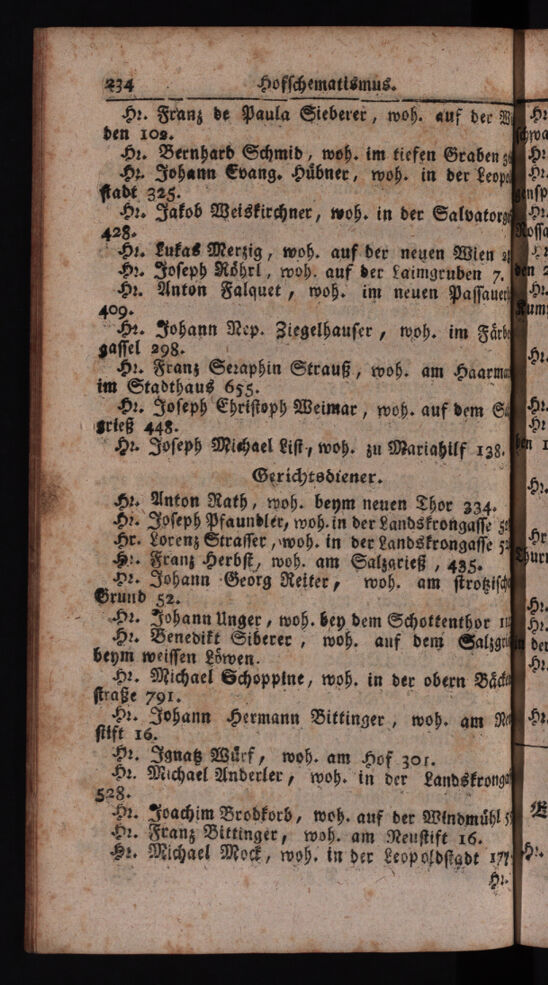 234 Hofschematismus.
Hr. Franz de Paula Sieberer, woh. auf der
den 102.
Hr. Bernhard Schmid, woh. im tiefen Graben
Hr. Johann Evang. Hübner, woh. in der Leopo
stadt 325.
Hr. Jakob Weiskirchner, woh. in der Salvatorg
428.
Hr. Lukas Merzig, woh. auf der neuen Wien
Hr. Joseph Röhrl, woh. auf der Laimgruben 7.
Hr. Anton Falquet, woh. im neuen Passauer
409.
Hr. Johann Nep. Ziegelhauser, woh. im Färbe
gassel 298.
Hr. Franz Seraphin Strauß, woh. am Haarma
im Stadthaus 655.
Hr. Joseph Christoph Weimar, woh. auf dem
grieß 448.
Hr. Joseph Michael List, woh. zu Mariahilf 138.
Gerichtsdiener.
Hr. Anton Rath, woh. beym neuen Thor 234.
Hr. Joseph Pfaundler, woh. in der Landskrongasse
Hr. Lorenz Strasser, woh. in der Landskrongasse
Hr. Franz Herbst, woh. am Salzgrieß, 435.
Hr. Johann Georg Reiter, woh. am strotzisch
Grund 52.
Hr. Johann Unger, woh. bey dem Schottenthor
Hr. Benedikt Siberer, woh. auf dem Salzgri
beym weissen Löwen.
Hr. Michael Schoppine, woh. in der obern Bäck
straße 791.
Hr. Johann Hermann Bittinger, woh. am Ne
stift 16.
Hr. Ignatz Würf, woh. am Hof 301.
Hr. Michael Anderler, woh. in der Landskronga
528.
Hr. Joachim Brodkorb, woh. auf der Windmühl
Hr. Franz Bittinger, woh. am Neustift 16.
Hr. Michael Mock, woh. in der Leopoldstadt 177
Hr.